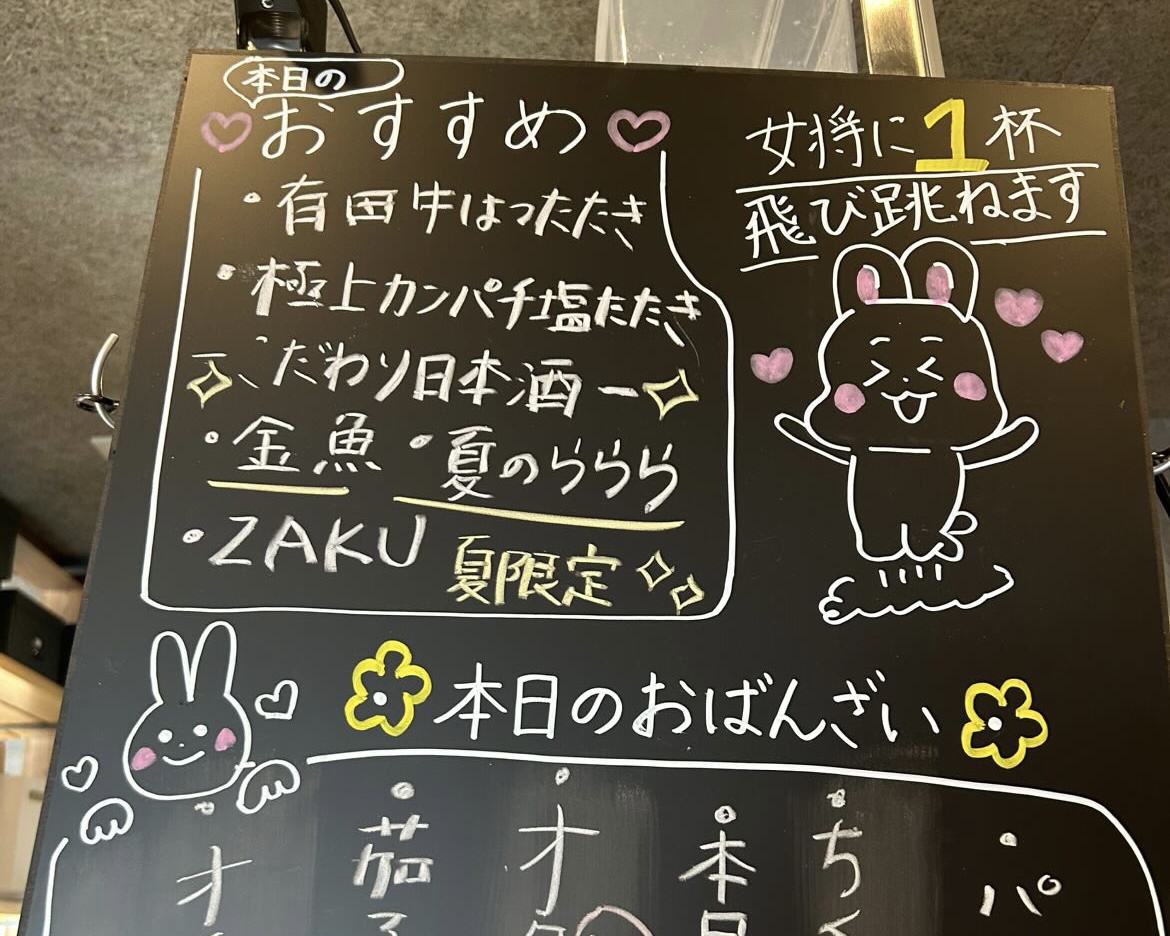 本日の
おすすめ
・有田牛はったたき
・極上カンパチ塩たたき
こだわり日本酒ー
・金魚 ・夏のららら
・ZAKU 夏限定
女将に1杯
飛び跳ねます
本日のおばんざい
・オ
・茄子
・オ
・本日
・ちく
・パ